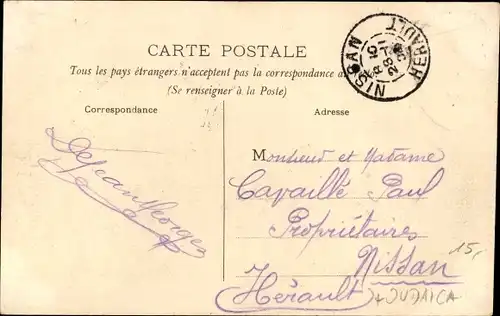 CARTE POSTALE
Tous les pays étrangers n'acceptent pas la correspondance au
(Se renseigner à la Poste)
Correspondance
Adresse
NISSAN
HÉRAULT
Dejean Georges
Monsieur et Madame
Cavaillé Paul
Propriétaires
Nissan
Hérault
15,-
+ JUDAICA